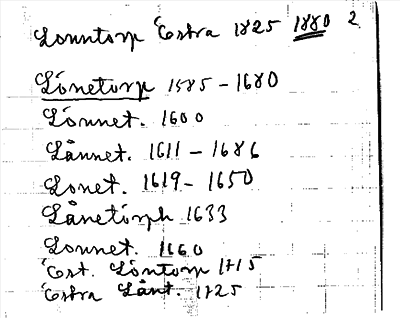 Lonntorp Östra 1825 1880 2
Lönetorp 1585-1680
Lönnet. 1600
Lånnet. 1611-1686
Lonet. 1619-1650
Lånetorph 1633
Lonnet. 1660
Öst. Löntorp 1715
Östra Lånt. 1725